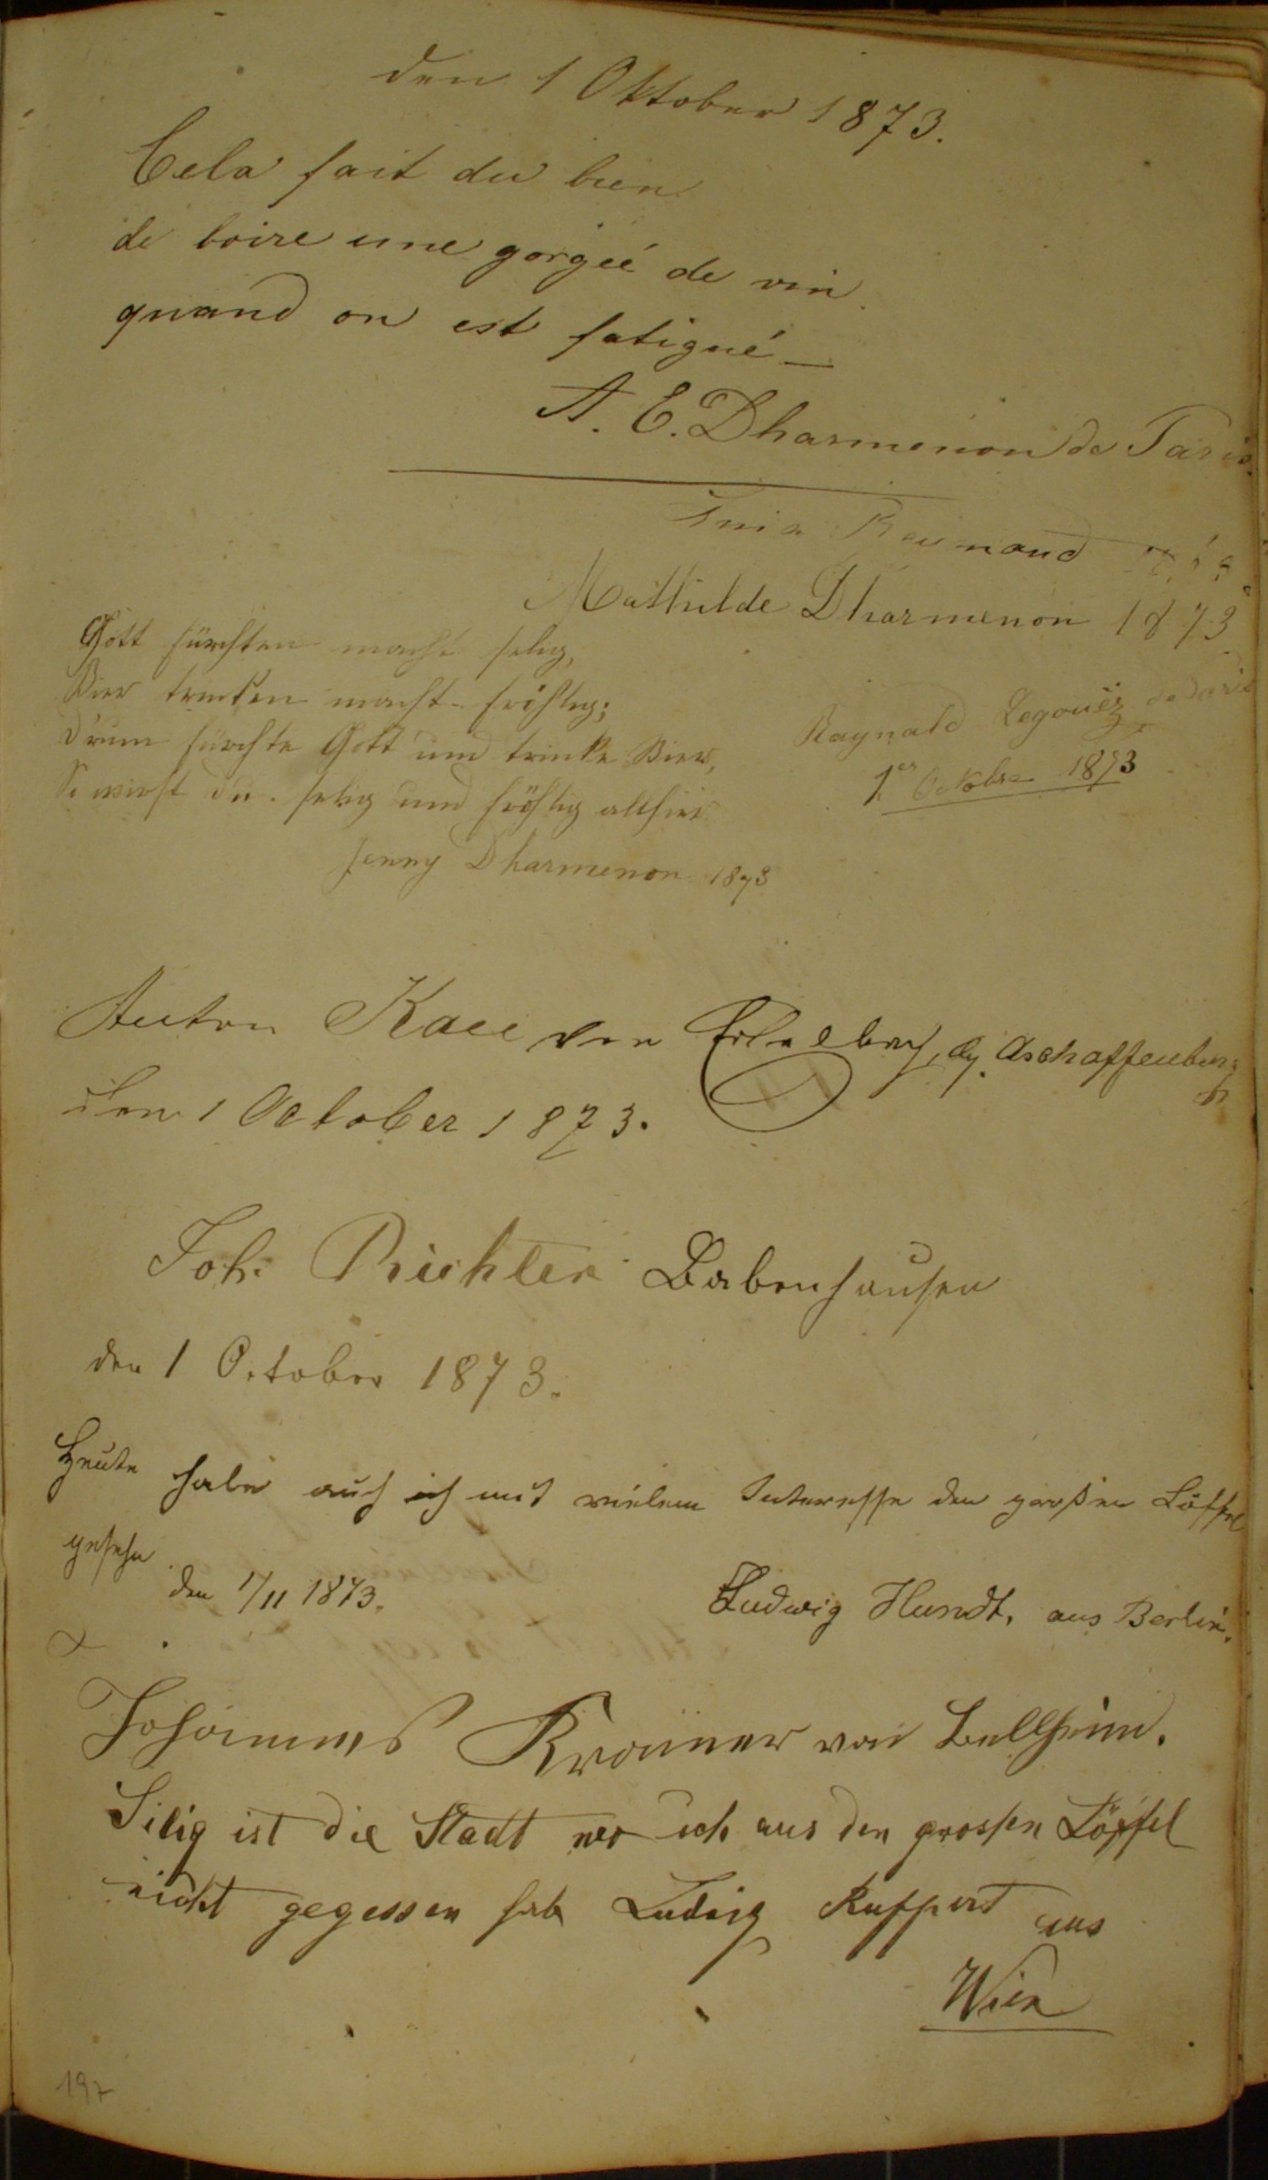 den 1 Oktober 1873.
Cela fait du bien
de boire une gorgeé de vin
quand on est fatigué _
A. E. Dharmenon de Paris.
Reumaud
Mathilde Dharmenon 1873
Gott fürchten macht selig,
Bier trinken macht fröhlig;
Drum fürchte Gott und trinke Bier,
So wirst du selig und fröhlig allhier
Jenny Dharmenon 1873
Raynald Legouëz de Paris
1er Octobre 1873
Anton von Aschaffenburg
den 1 October 1873.
Joh. Richter Babenhausen
den 1 October 1873.
Heute habe auch ich mit vielem Interesse den großen Löffel
gesehn
den 1/11 1873.
Ludwig Hundt, aus Berlin.
Johannes von Bellheim.
Silig ist die Stadt wo ich aus den grossen Löffel
nicht gegessen hab Ludwig Ruppert aus
Wien
197